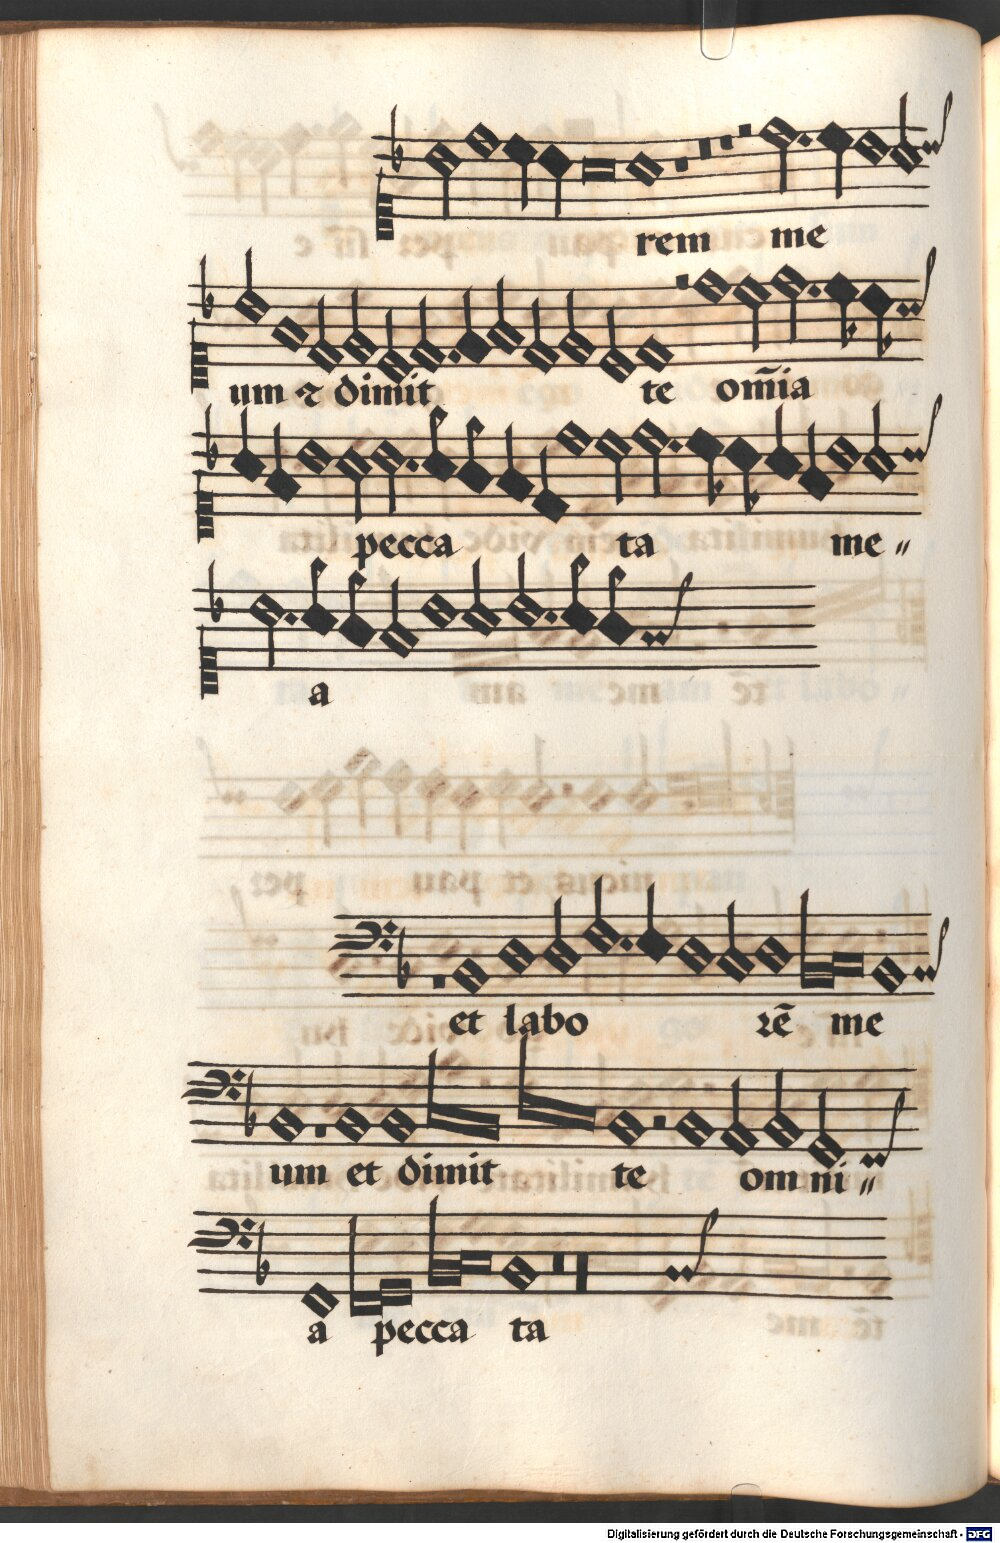 rem me
um ⁊ dimit te om̄ia
pecca ta me〃
a
et labo rē me
um et dimit te omni〃
a pecca ta
Digitalisierung gefördert durch die Deutsche Forschungsgemeinschaft - DFG